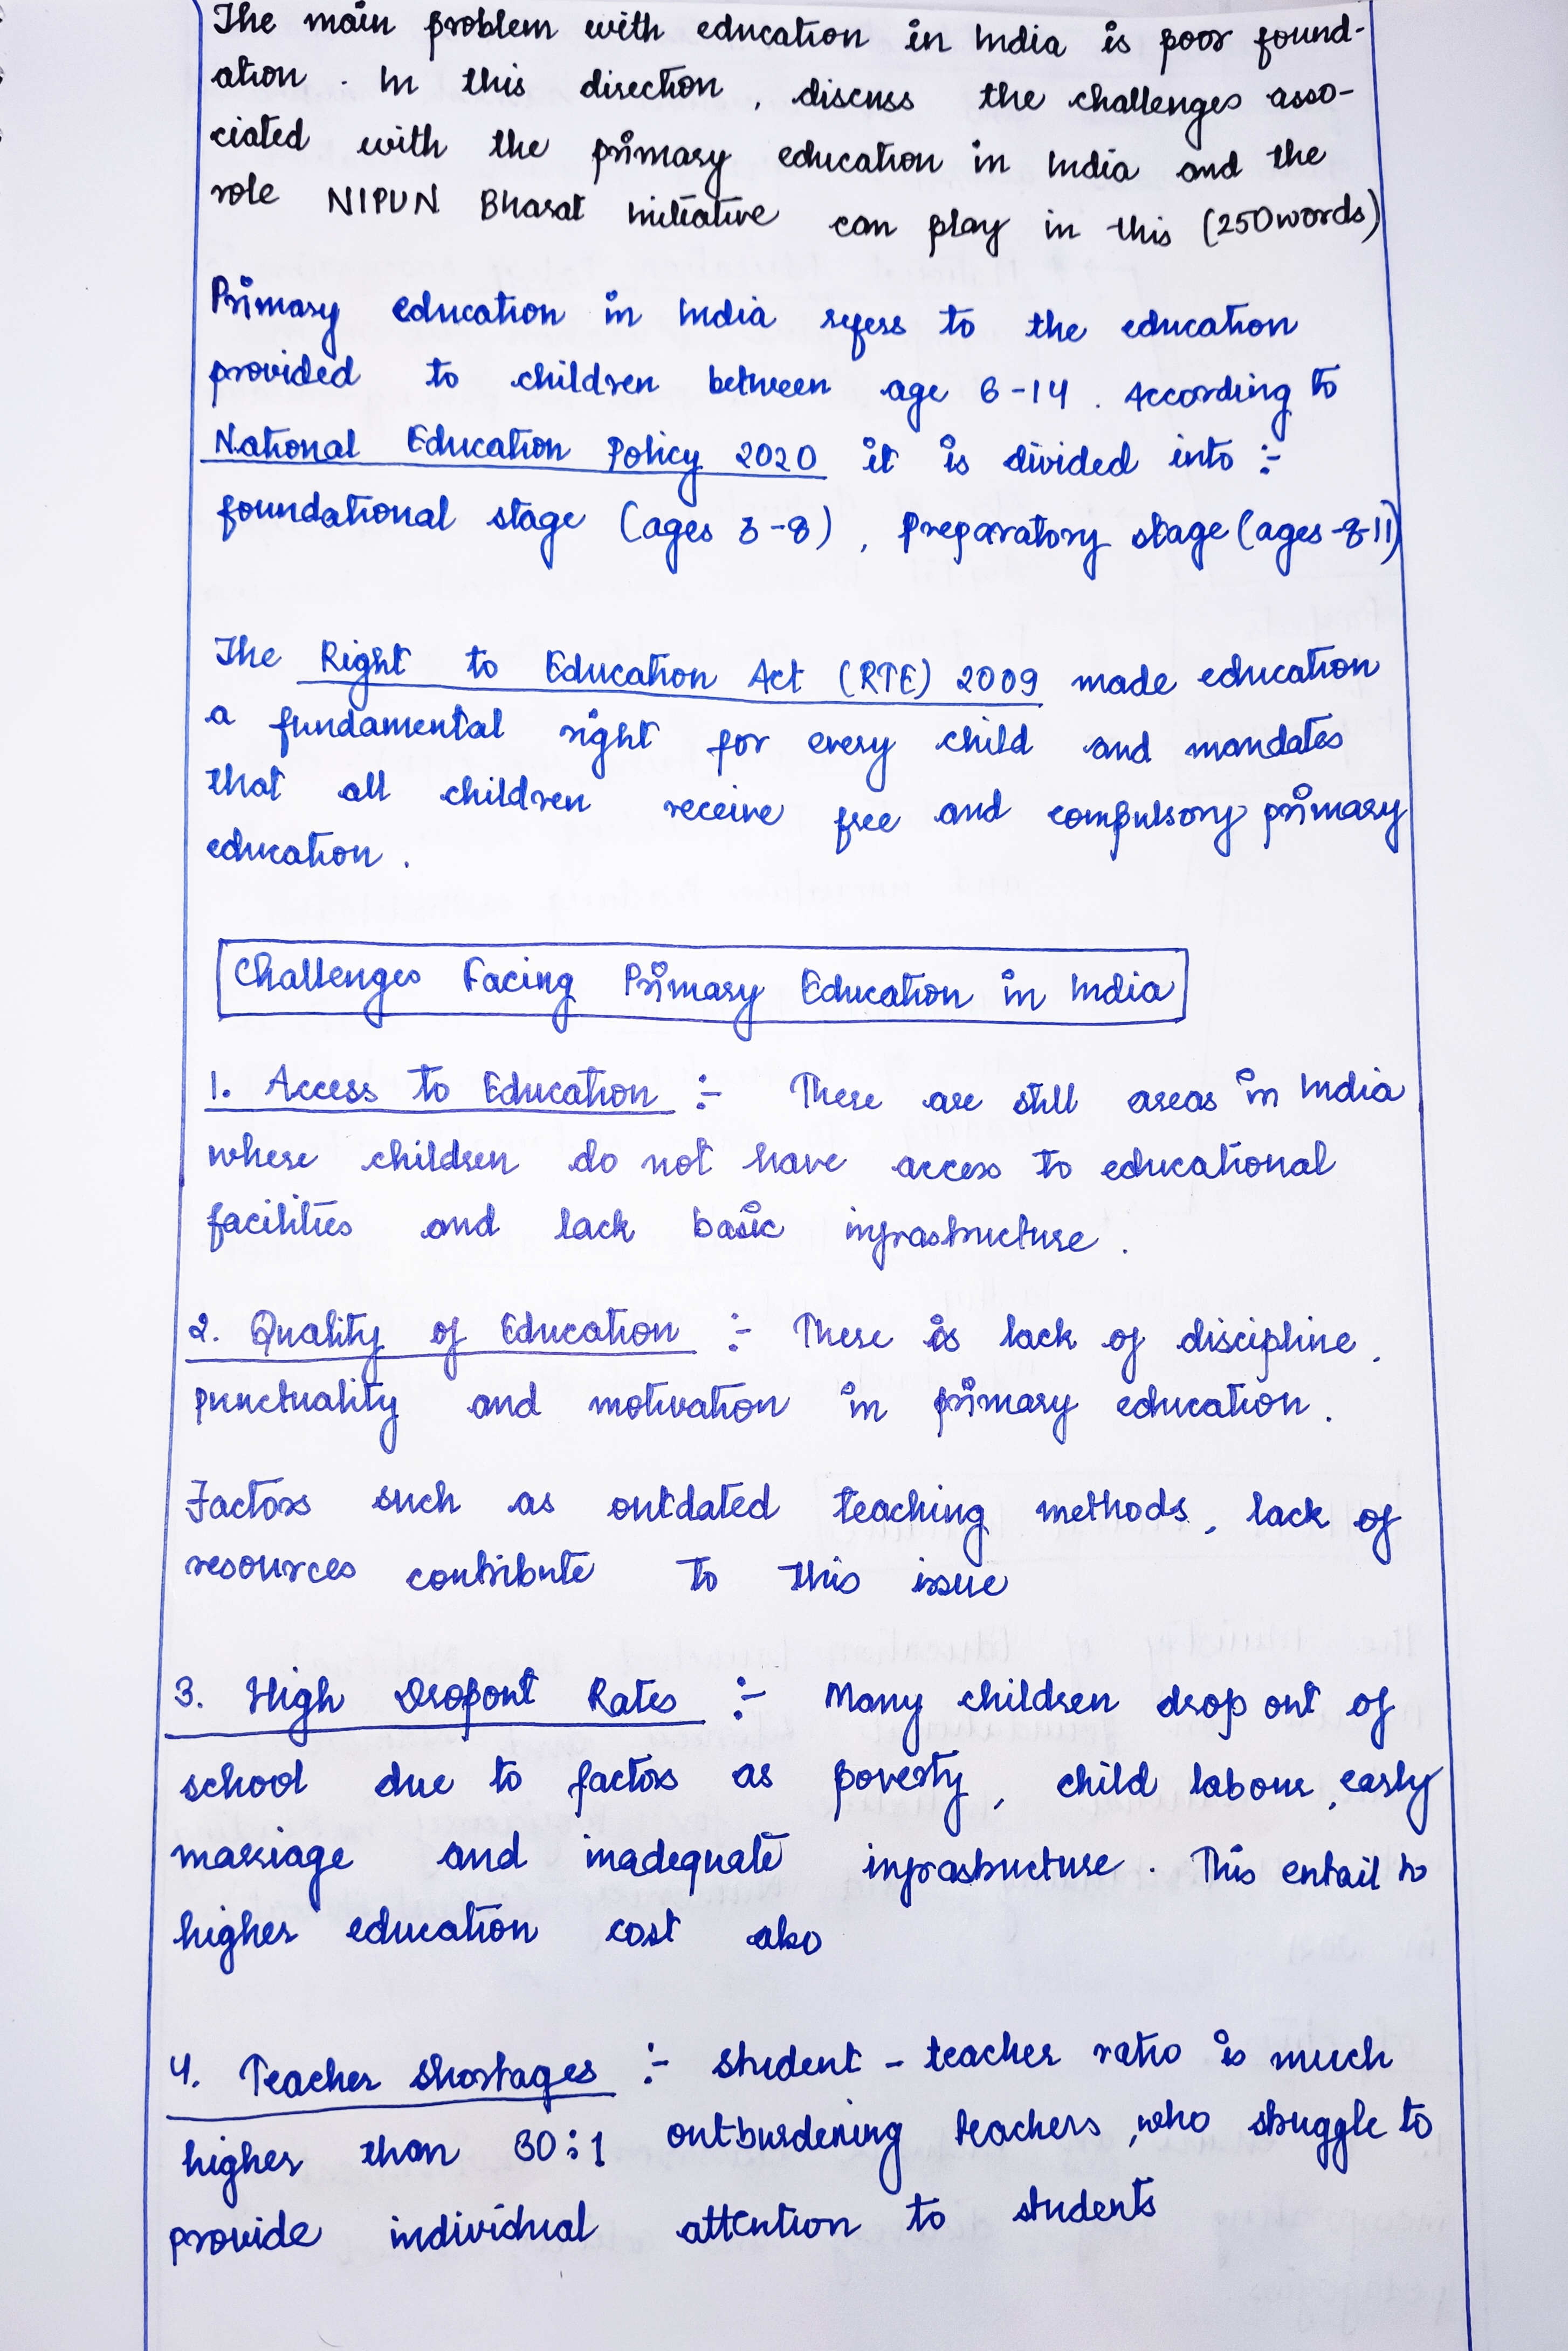 The main problem with education in India is poor found-
ation. In this direction, discuss the challenges asso-
ciated with the primary education in India and the
role NIPUN Bharat Initiative can play in this (250words)
Primary education in India refers to the education
provided to children between age 6-14. According to
National Education Policy 2020 it is divided into :-
foundational stage (ages 3-8), Preparatory stage (ages-8-11)
The Right to Education Act (RTE) 2009 made education
a fundamental right for every child and mandates
that all children receive free and compulsory primary
education.
Challenges Facing Primary Education in India
1. Access to Education :- There are still areas in India
where children do not have access to educational
facilities and lack basic infrastructure.
2. Quality of Education :- There is lack of discipline,
punctuality and motivation in primary education.
Factors such as outdated teaching methods, lack of
resources contribute to this issue
3. High Dropout Rates :- Many children drop out of
school due to factors as poverty, child labour, early
marriage and inadequate infrastructure. This entail to
higher education cost also
4. Teacher Shortages :- Student - teacher ratio is much
higher than 30:1 outburdening teachers, who struggle to
provide individual attention to students